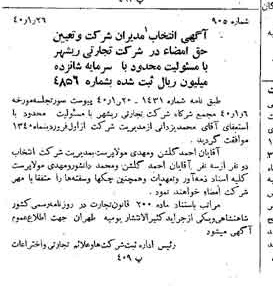 شماره ۹۰۵ ۴۰/۱/۲۶
آگهی انتخاب مدیران شرکت و تعیین
حق امضاء در شرکت تجارتی ریشهر
با مسئولیت محدود با سرمایه شانزده
میلیون ریال ثبت شده بشماره ۴۸۵۶
طبق نامه شماره ۱۴۳۱ - ۴۰/۱/۲۰ پیوست صورتجلسه مورخه
۴۰/۱/۶ مجمع شرکاء شرکت تجارتی ریشهر با مسئولیت محدود با
استعفای آقای محمد یزدانی از مدیریت شرکت از اول فروردینماه ۱۳۴۰
موافقت گردید.
آقایان احمد گلشن ومهدی مولاپرست بمدیریت شرکت انتخاب
دو نفر از سه نفر آقایان احمد گلشن و محمد دانشور ومهدی مولاپرست
کلیه اسناد ذمه‌آور وتعهدات وهمچنین چکها وسفته‌ها را متفقا با مهر
شرکت امضاء خواهند نمود.
مراتب باستناد ماده ۲۰۰ قانون تجارت در روزنامه رسمی کشور
شاهنشاهی ویکی از جراید کثیرالانتشار یومیه طهران جهت اطلاع عموم
آگهی میشود
رئیس اداره ثبت شرکت‌ها و علائم تجارتی و اختراعات
پ ۴۰۹